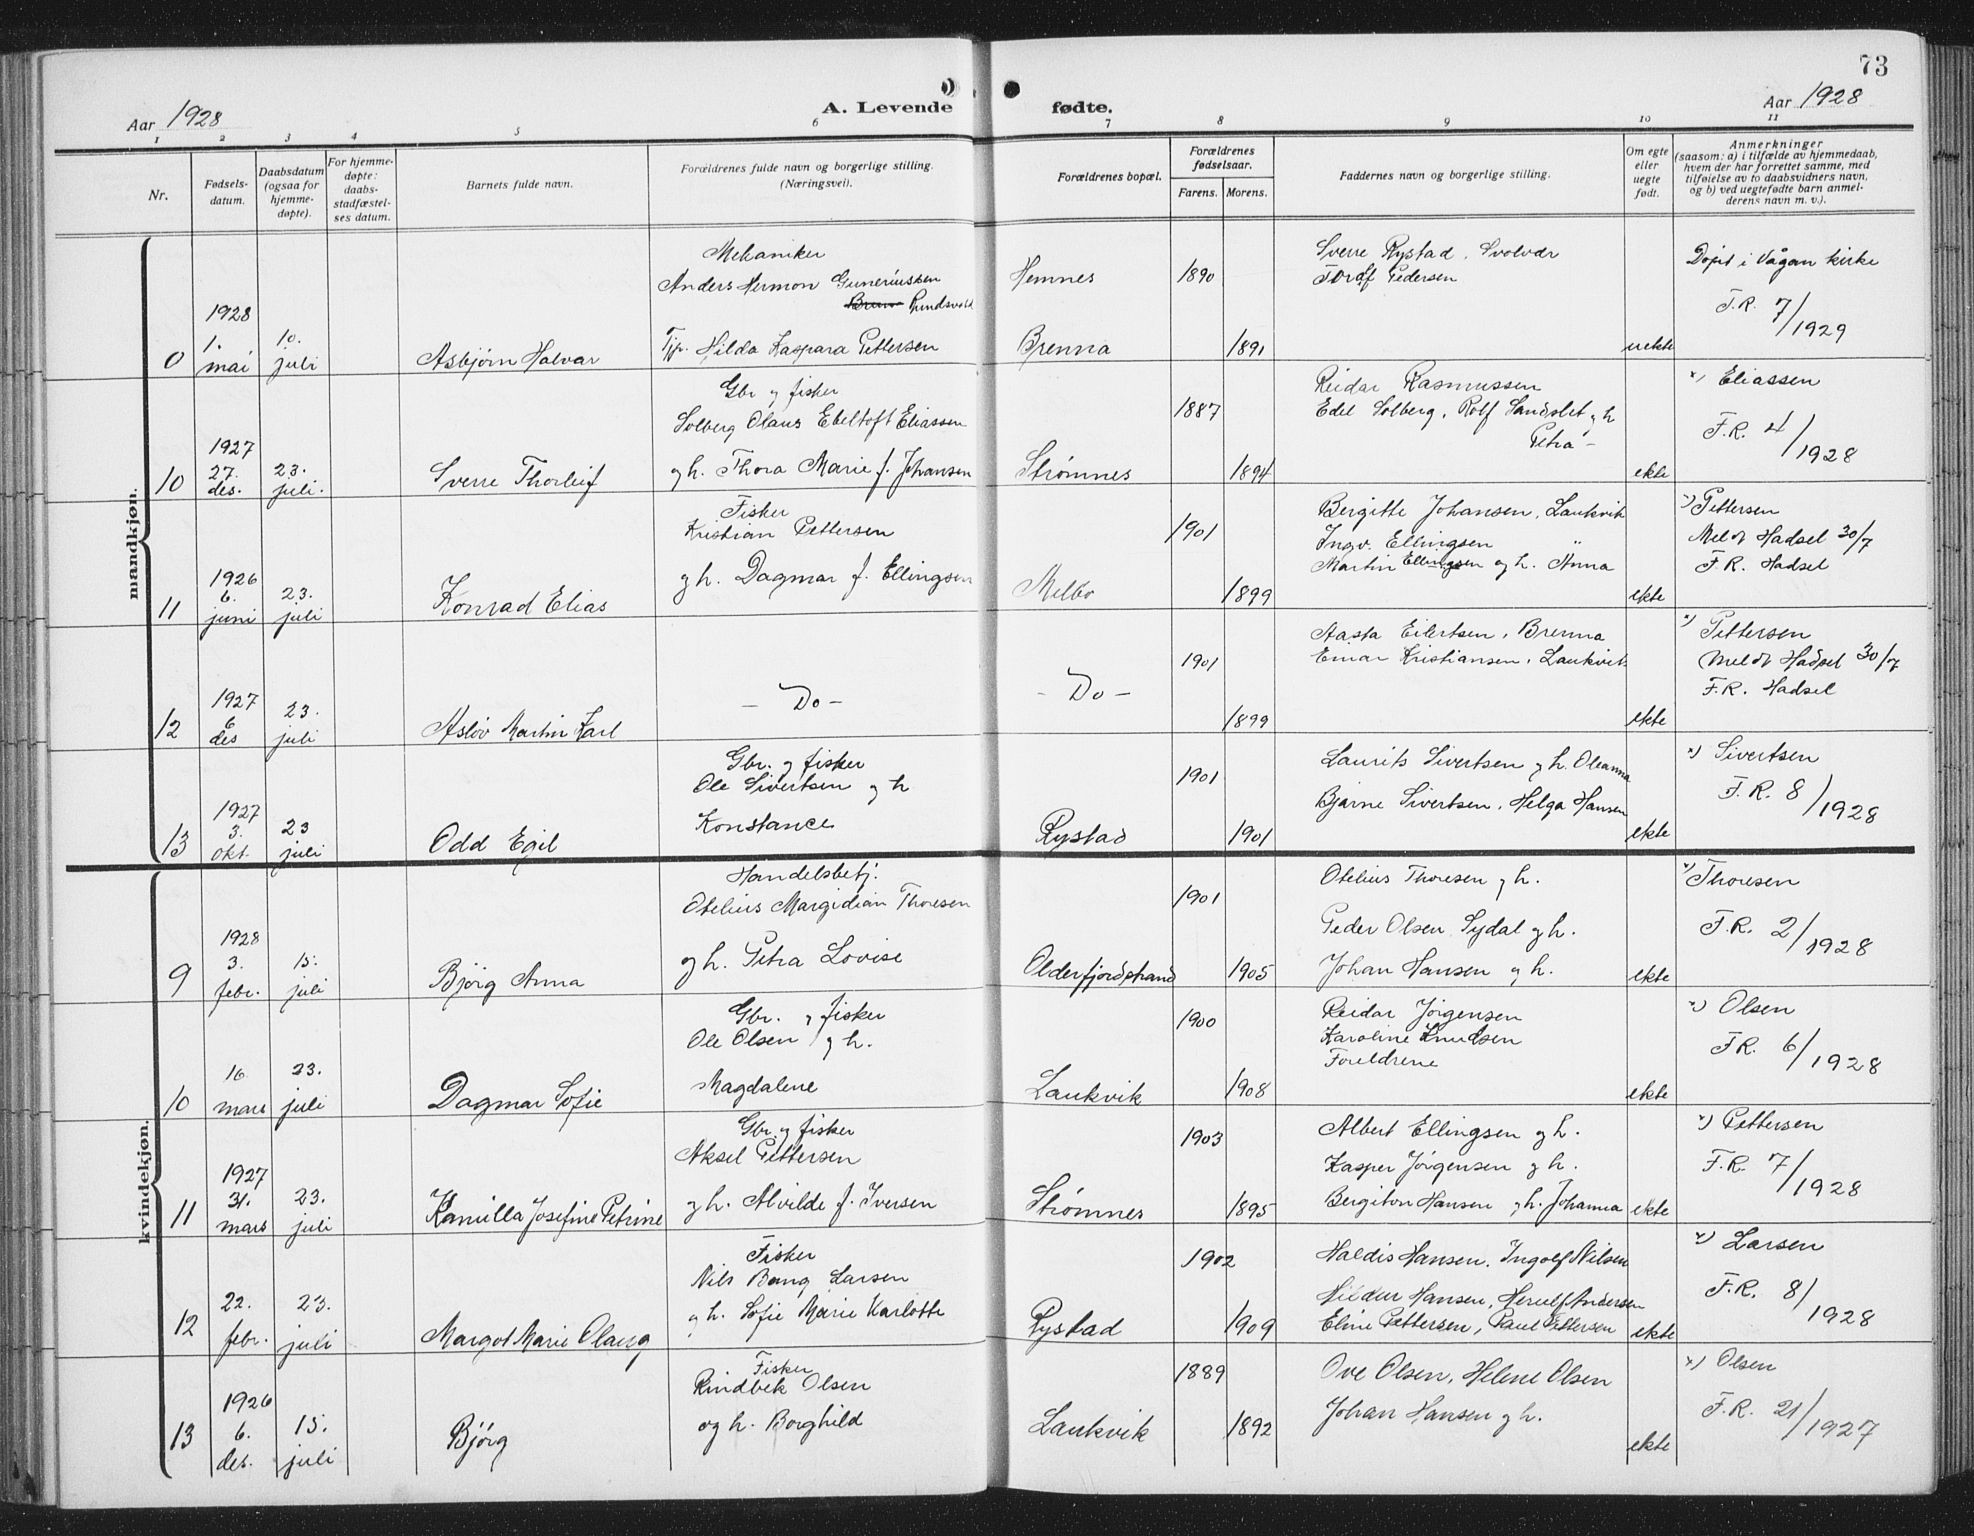 73
Aar 1928
A. Levende fødte.
Aar 1928
1 2 3 4 5 6 7 8 9 10 11
Nr.
Fødsels-
datum.
Daabsdatum
(ogsaa for
hjemme-
døpte).
For hjemme-
døpte:
daabs-
stadfæstel-
ses datum.
Barnets fulde navn.
Forældrenes fulde navn og borgerlige stilling.
(Næringsvei).
Forældrenes bopæl.
Forældrenes
fødselsaar.
Farens. Morens.
Faddernes navn og borgerlige stilling.
Om egte
eller
uegte
født.
Anmerkninger
(saasom: a) i tilfælde av hjemmedaab,
hvem der har forrettet samme, med
tilføielse av to daabsvidners navn,
og b) ved uegtefødte barn anmel-
derens navn m. v.).
mandkjøn.
0
1928
1.
mai
10.
juli
Asbjørn Halvar
Mekaniker
Anders Hermon Guneriussen
Rindsvold
Tjp. Hilda Kaspara Pettersen
Hemnes
Brenna
1890
1891
Sverre Rystad, Svolvær
Tordf Pedersen
uekte
Døpt i Vågan kirke
F.R. 7/1929
10
1927
27.
des.
23.
juli.
Sverre Thorleif
Gbr og fisker
Solberg Olaus Ebeltoft Eliassen
og h. Thora Marie f. Johansen
Strømnes
1887
1894
Reidar Rasmussen
Edel Solberg, Rolf Sandslet og h
Petra -
ekte
x) Eliassen
F.R. 4/1928
11
1926
6.
juni
23.
juli
Konrad Elias
Fisker
Kristian Pettersen
og h. Dagmar f. Ellingsen
Melbo
1901
1899
Bergitte Johansen, Laukvik
Ingv. Ellingsen "
Martin Ellingsen og h. Anna
ekte
x) Pettersen
Meldt Hadsel 30/7
F.R. Hadsel
12
1927
6
des
23.
juli
Asløv Martin Karl
- Do -
- Do -
1901
1899
Aasta Eilertsen, Brenna
Einar Kristiansen, Laukvik
ekte
x) Pettersen
Meldt Hadsel 30/7
F.R. Hadsel
13
1927
3.
okt.
23
juli
Odd Egil
Gbr. og fisker
Ole Sivertsen og h
Konstance
Rystad
1901
1901
Laurits Sivertsen og h. Oleanna
Bjarne Sivertsen, Helga Hansen
ekte
x) Sivertsen
F.R. 8/1928
kvindekjøn.
9
1928
3.
febr.
15.
juli
Bjørg Anna
Handelsbetj.
Otelius Margidian Thoresen
og h. Petra Lovise
Olderfjordstrand
1901
1905
Otelius Thoresen og h.
Peder Olsen Sydal og h.
Johan Hansen og h.
ekte
x) Thoresen
F.R. 2/1928
10
16
mars
23.
juli
Dagmar Sofie
Gbr. og fisker
Ole Olsen og h.
Magdalene
Laukvik
1900
1908
Reidar Jørgensen
Karoline Knudsen
Foreldrene
ekte
x) Olsen
F.R. 6/1928
11
1927
31.
mars
23.
juli
Kamilla Josefine Petrine
Gbr og fisker
Aksel Pettersen
og h. Alvilde f. Iversen
Strømnes
1903
1895
Albert Ellingsen og h.
Kasper Jørgensen og h.
Bergiton Hansen og h. Johanna
ekte
x) Pettersen
F.R. 7/1928
12
22.
febr.
23.
juli
Margot Marie Olaug
Fisker
Nils Bang Larsen
og h. Sofie Marie Karlotte
Rystad
1902
1909
Haldis Hansen, Ingolf Nilsen
Hildur Hansen, Herulf Andersen
Eline Pettersen, Paul Pettersen
ekte
x) Larsen
F.R. 8/1928
13
1926
6.
des.
15.
juli
Bjørg
Fisker
Rindbek Olsen
og h. Borghild
Laukvik
1889
1892
Ove Olsen, Helene Olsen
Johan Hansen og h.
ekte
x) Olsen
F.R. 21/1927